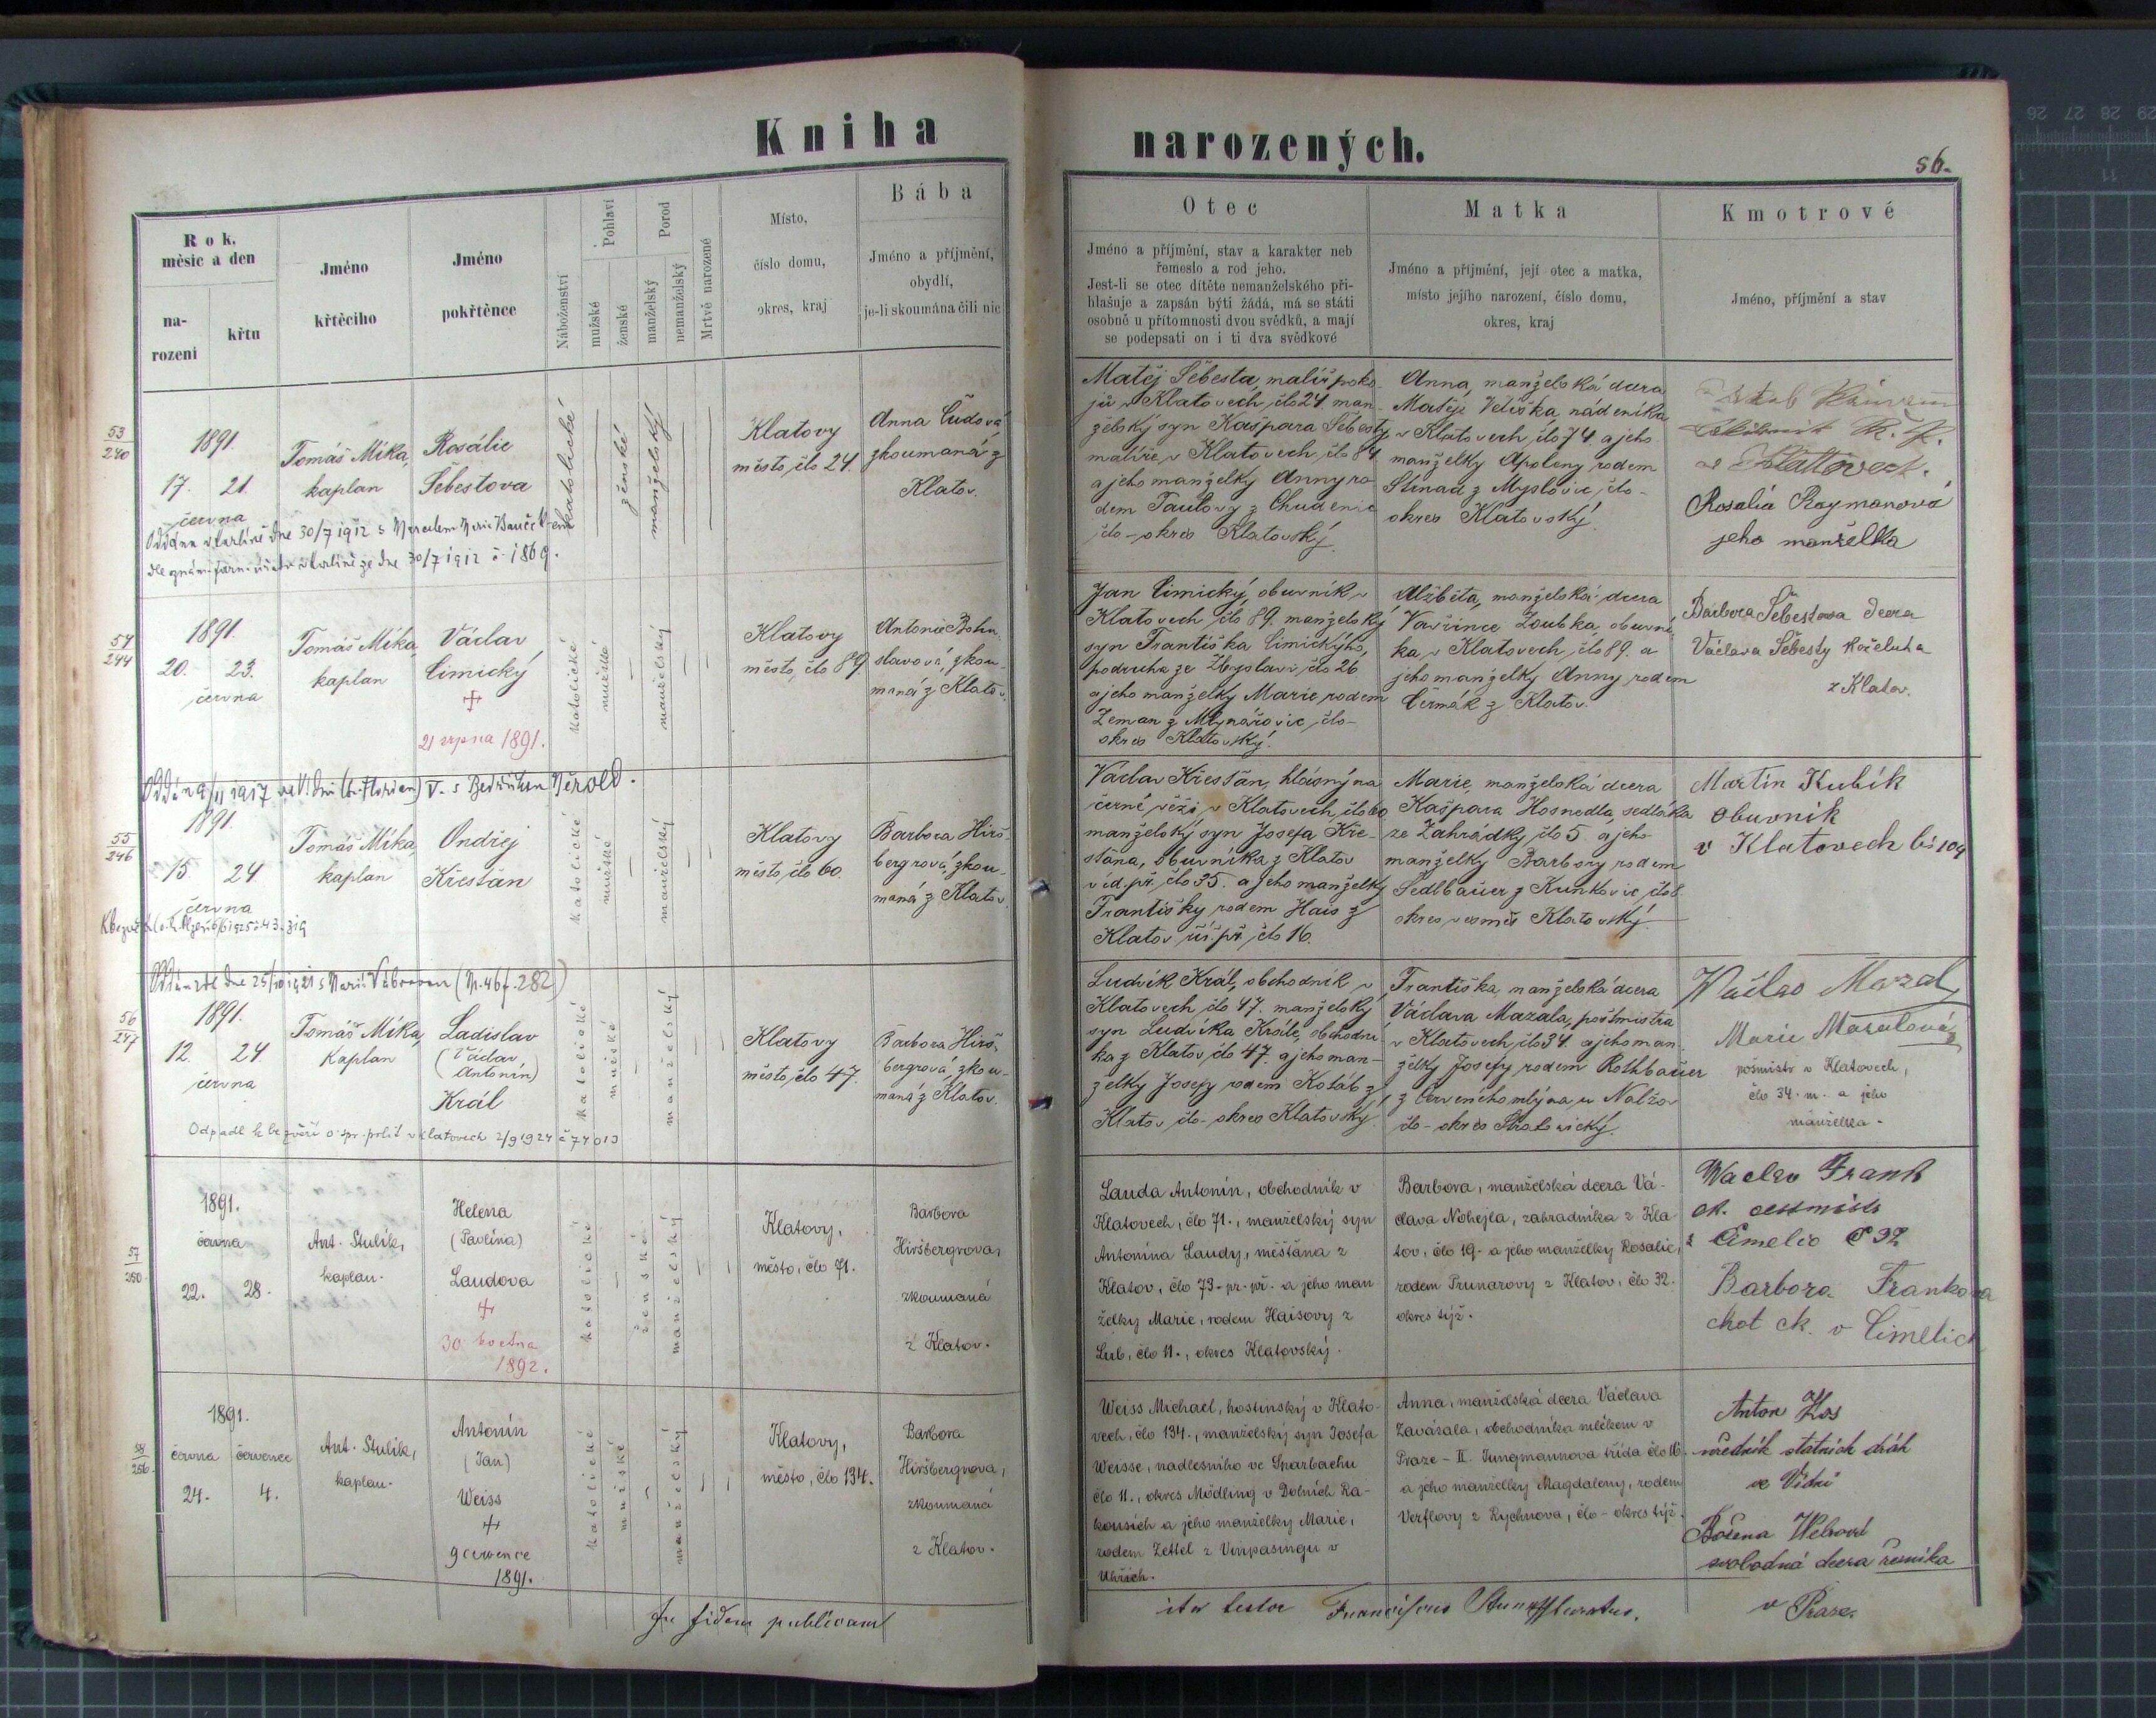 Kniha
narozených.
56.
Rok,
měsíc a den
na-
rození
křtu
Jméno
křtěcího
Jméno
pokřtěnce
Náboženství
Pohlaví
mužské
ženské
Porod
manželský
nemanželský
Mrtvě narozené
Místo,
číslo domu,
okres, kraj
Bába
Jméno a příjmění,
obydlí,
je-li skoumána čili nic
Otec
Jméno a příjmění, stav a karakter neb
řemeslo a rod jeho.
Jest-li se otec dítěte nemanželského při-
hlašuje a zapsán býti žádá, má se státi
osobně u přítomnosti dvou svědků, a mají
se podepsati on i ti dva svědkové
Matka
Jméno a příjmění, její otec a matka,
místo jejího narození, číslo domu,
okres, kraj
Kmotrové
Jméno, příjmění a stav
53
240
1891.
17. 21.
června
Tomáš Míka,
kaplan
Rosálie
Šebestova
katolické
ženské
manželský
Klatovy
město, člo 24.
Anna Čudová
zkoumaná z
Klatov.
dne 30/7 1912 s
30/7 1912 č. 1869.
Matěj Šebesta, malíř poko-
jů v Klatovech, člo 24. man-
želský syn Kašpara Šebesty
malíře, v Klatovech, člo 84.
a jeho manželky Anny ro-
dem Tautovy z Chudenic
člo - okres Klatovský.
Anna, manželská dcera
Matěje Vetiška, nádeníka
v Klatovech, člo 74. a jeho
manželky Apoleny rodem
Stenad z Myslovic, člo -
okres Klatovský.
v Klatovech.
Rosalia Raymanová
jeho manželka
54
244
1891.
20. 23.
června
Tomáš Míka,
kaplan
Václav
Cimický
21 srpna 1891.
katolické
mužské
manželský
Klatovy
město, člo 89.
Antonie Bohu-
slavová, zkou-
maná z Klatov.
Jan Cimický, obuvník v
Klatovech, čló 89. manželský
syn Františka Cimického,
podruha ze Zbyslavi, člo 26
a jeho manželky Marie rodem
Zeman z Mlynářovic, člo -
okres Klatovský.
Alžběta, manželská dcera
Vavřince Zoubka, obuvní-
ka, v Klatovech, člo 89. a
jeho manželky Anny rodem
Čermák z Klatov.
Barbora Šebestova dcera
Václava Šebesty koželuha
z Klatov.
1917 s Bedřiškou Nerold.
55
246
1891.
15 24
června
Tomáš Míka,
kaplan
Ondřej
Křestan
katolické
mužské
manželský
Klatovy
město, člo 60.
Barbora Hirš-
bergrová, zkou-
maná z Klatov.
Václav Křestan, hlásný na
černé věži, v Klatovech, člo 60
manželský syn Josefa Kře-
stana, obuvníka z Klatov
víd. př. člo 35. a jeho manželky
Františky rodem Hais z
Klatov čís př. člo 16.
Marie, manželská dcera
Kašpara Hosnedla, sedláka
ze Zahrádky, člo 5. a jeho
manželky Barbory rodem
Sedlbauer z Kunkovic, čló 8
okres vesměs Klatovský.
Martin Kubík
obuvník
v Klatovech čís 104
dne 25/10 1921 s Marií Vábrovou (N. 46 f. 282)
56
247
1891.
12. 24.
června
Tomáš Míka,
kaplan
Ladislav
(Václav,
Antonín)
Král
katolické
mužské
manželský
Klatovy
město, člo 47.
Barbora Hirš-
bergrová, zkou-
maná z Klatov.
Odpadl k bezvěří o. spr. polit. v Klatovech 2/9 1924 č 74013
Ludvík Král, obchodník v
Klatovech, čló 47. manželský
syn Ludvíka Krále, obchodní-
ka z Klatov, člo 47. a jeho man-
želky Josefy rodem Koláb z
Klatov čto - okres Klatovský.
Františka, manželská dcera
Václava Mazala, poštmistra
v Klatovech, čló 34. a jeho man-
želky Josefy rodem Rothbauer
z Červeného mlýna u Nalžov
čto - okres Stratonický.
Wáclav Mazal,
Marie Mazalová
poštmistr v Klatovech,
člo 34. m. a jeho
manželka.
57
250.
1891.
června
22. 28.
Ant. Stulík,
kaplan.
Helena
(Pavlína)
Laudova
30. května
1892.
katolické
ženské
manželský
Klatovy,
město, člo 71.
Barbora
Hiršbergrova,
zkoumaná
z Klatov.
Lauda Antonín, obchodník v
Klatovech, člo 71., manželský syn
Antonína Laudy, měšťana z
Klatov, čló 73. pr. př. a jeho man
želky Marie, rodem Haisovy z
Lub, člo 11., okres Klatovský.
Barbora, manželská dcera Vá-
clava Nohejla, zahradníka z Kla
tov, čló 19. a jeho manželky Rosalie,
rodem Prunarovy z Klatov, čló 32.
okres týž.
Waclav Frank
z Čimelic č 32
Barbora Franková
choť ck. v Čimelic
58
256.
1891.
června července
24. 4.
Ant. Stulík,
kaplan.
Antonín
(Jan)
Weiss
9 července
1891.
katolické
mužské
manželský
Klatovy,
město, čló 134.
Barbora
Hiršbergrova,
zkoumaná
z Klatov.
Weiss Michael, hostinský v Klato-
vech, čló 134., manželský syn Josefa
Weisse, nadlesního ve Sparbachu
čló 11., okres Mödling v Dolních Ra-
kousích a jeho manželky Marie,
rodem Zettel z Vimpasingu v
Uhřích.
Anna, manželská dcera Václava
Zavásala, obchodníka mlékem v
Praze - II. Jungmannova třída čló 16.
a jeho manželky Magdaleny, rodem
Verflovy z Rychnova, čló - okres týž.
Anton Kos
úředník statních dráh
ve Vídni
Božena Webrová
svobodná dcera řezníka
v Praze.
In fidem publicam
ita testor